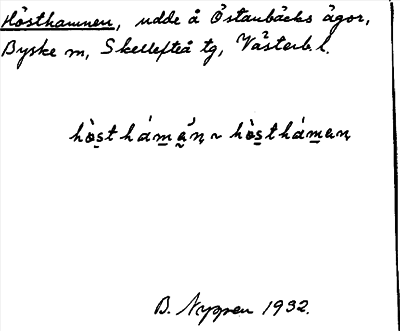 Hösthamnen, udde å Östanbäcks ägor,
Byske sn, Skellefteå tg, Västerb. l.
hò̱sthám̱ə̉ṇ ~ hò̱sthám̱aṇ
B. Nyppen 1932.